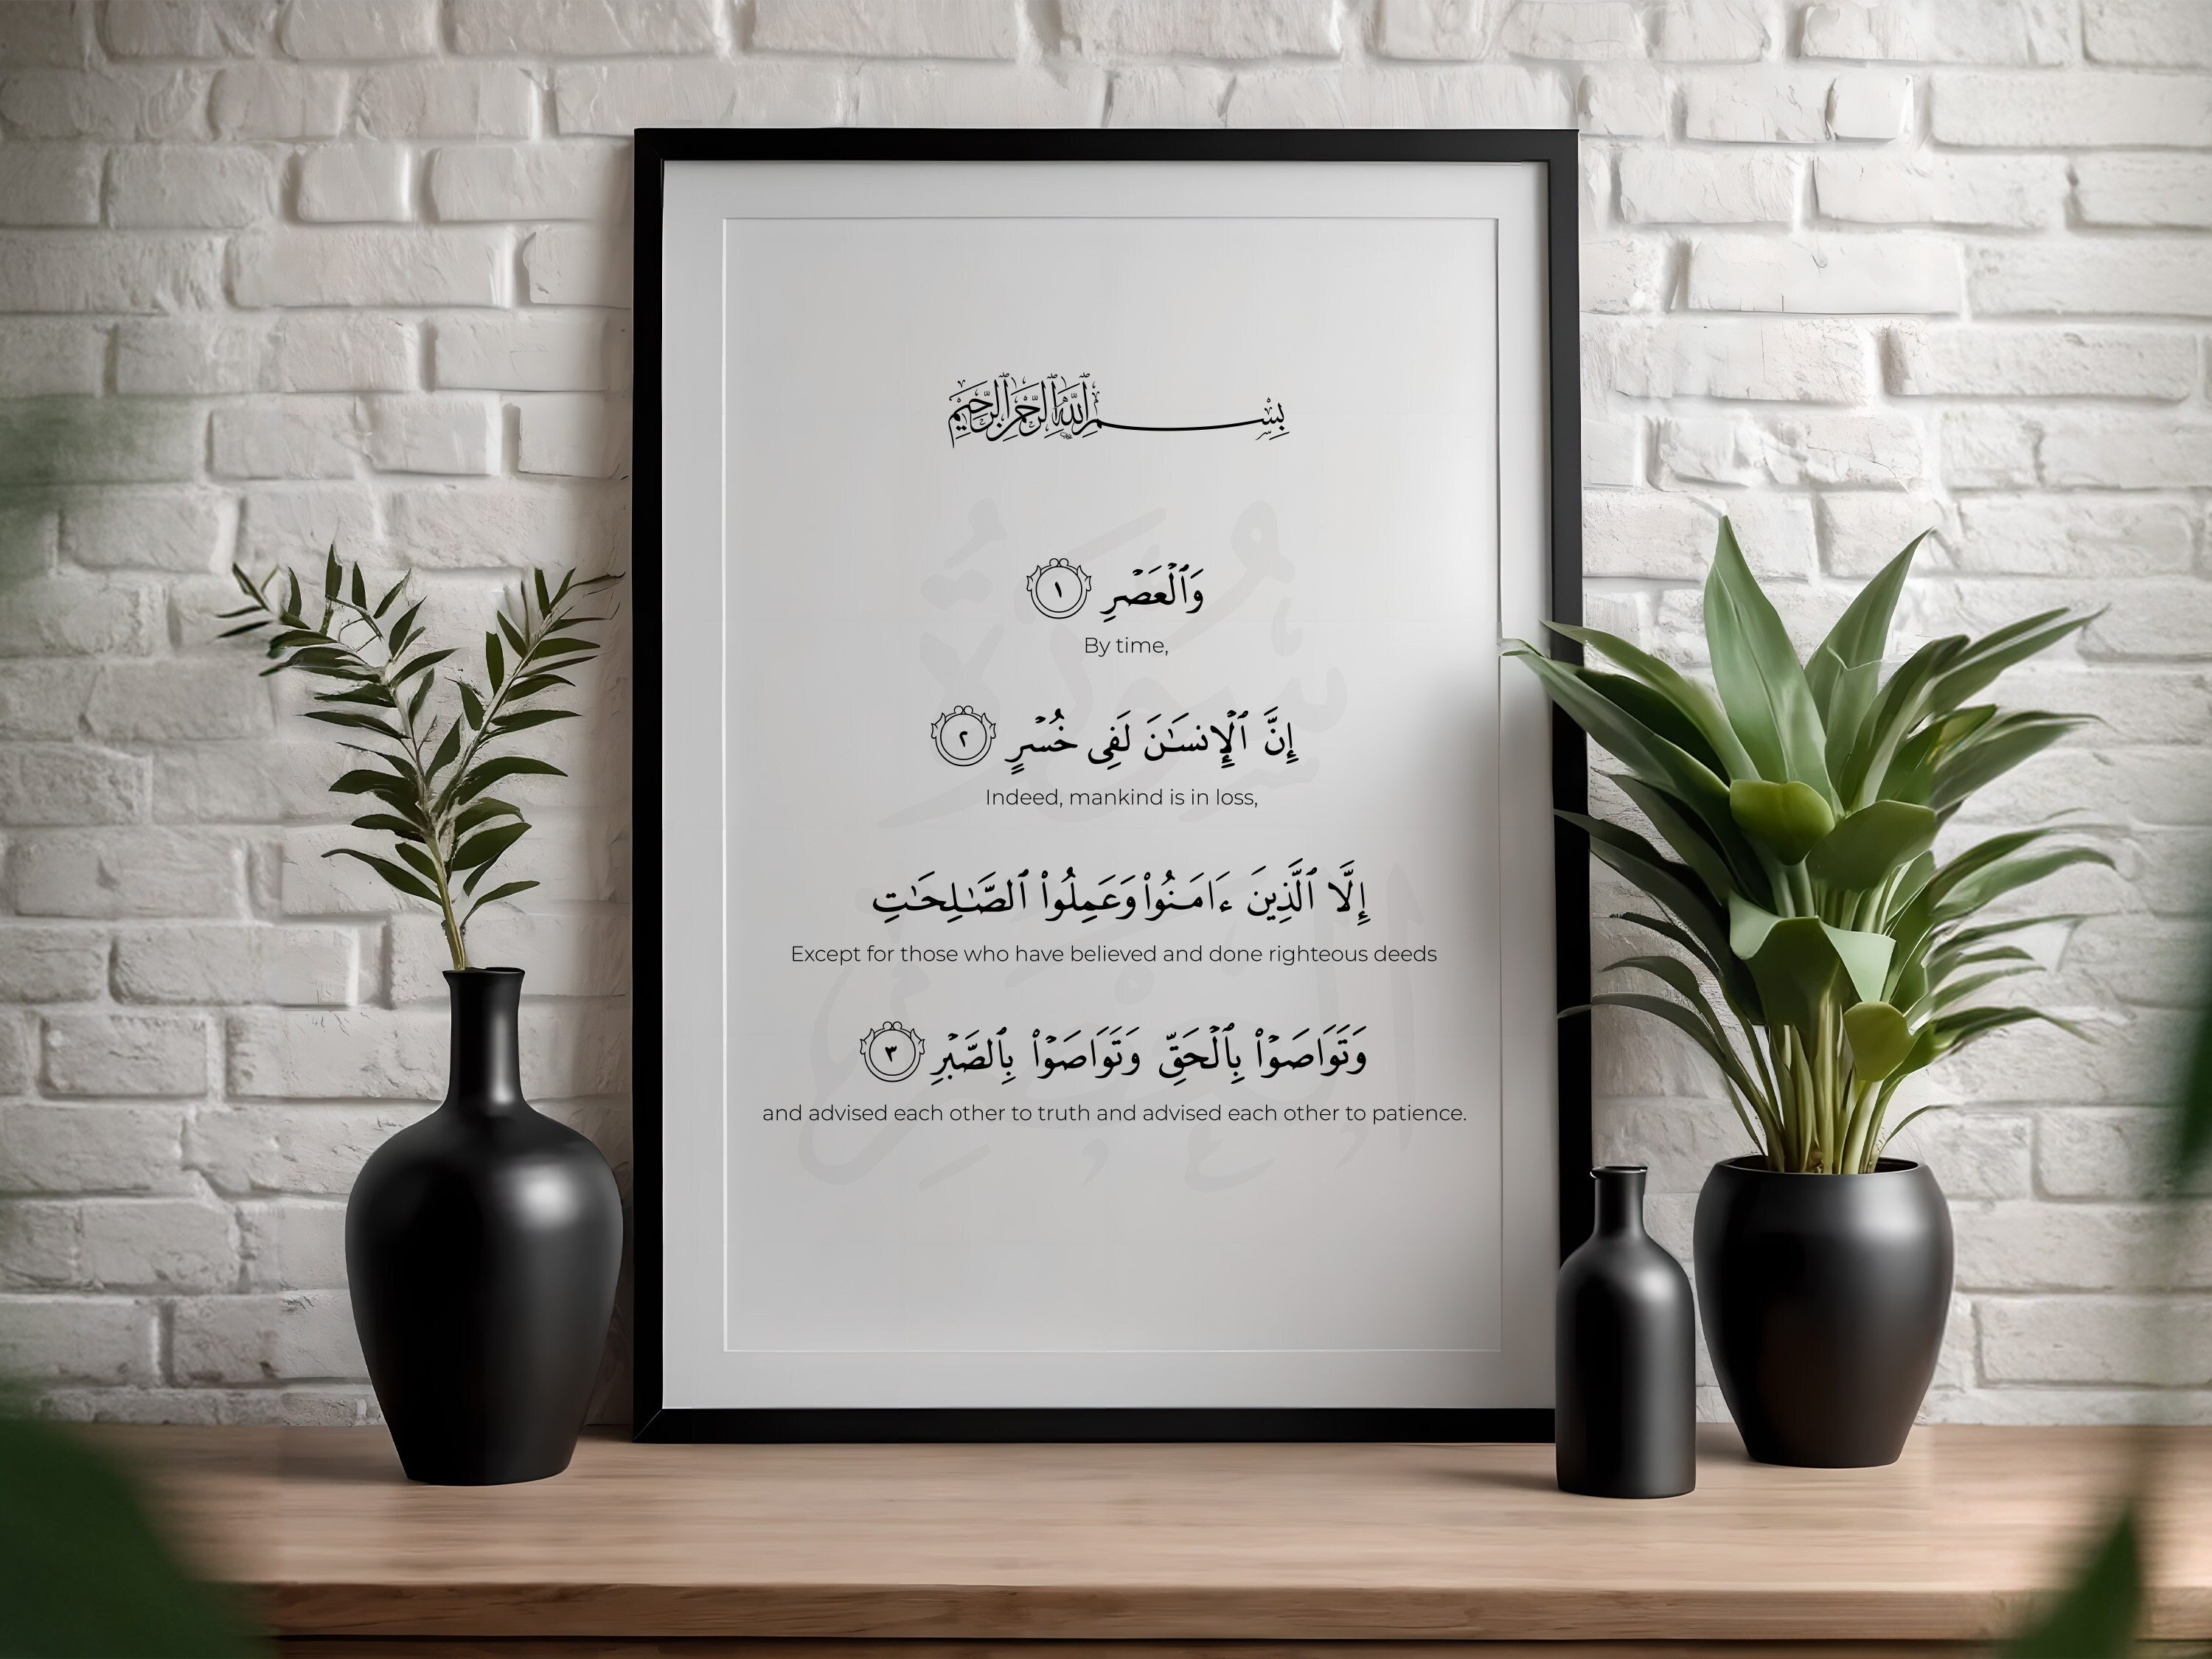 بِسْمِ ٱللَّهِ ٱلرَّحْمَٰنِ ٱلرَّحِيمِ
وَٱلْعَصْرِ ١
By time,
إِنَّ ٱلْإِنسَٰنَ لَفِى خُسْرٍ ٢
Indeed, mankind is in loss,
إِلَّا ٱلَّذِينَ ءَامَنُوا۟ وَعَمِلُوا۟ ٱلصَّٰلِحَٰتِ
Except for those who have believed and done righteous deeds
وَتَوَاصَوْا۟ بِٱلْحَقِّ وَتَوَاصَوْا۟ بِٱلصَّبْرِ ٣
and advised each other to truth and advised each other to patience.
سُورَةُ
العَصْرِ